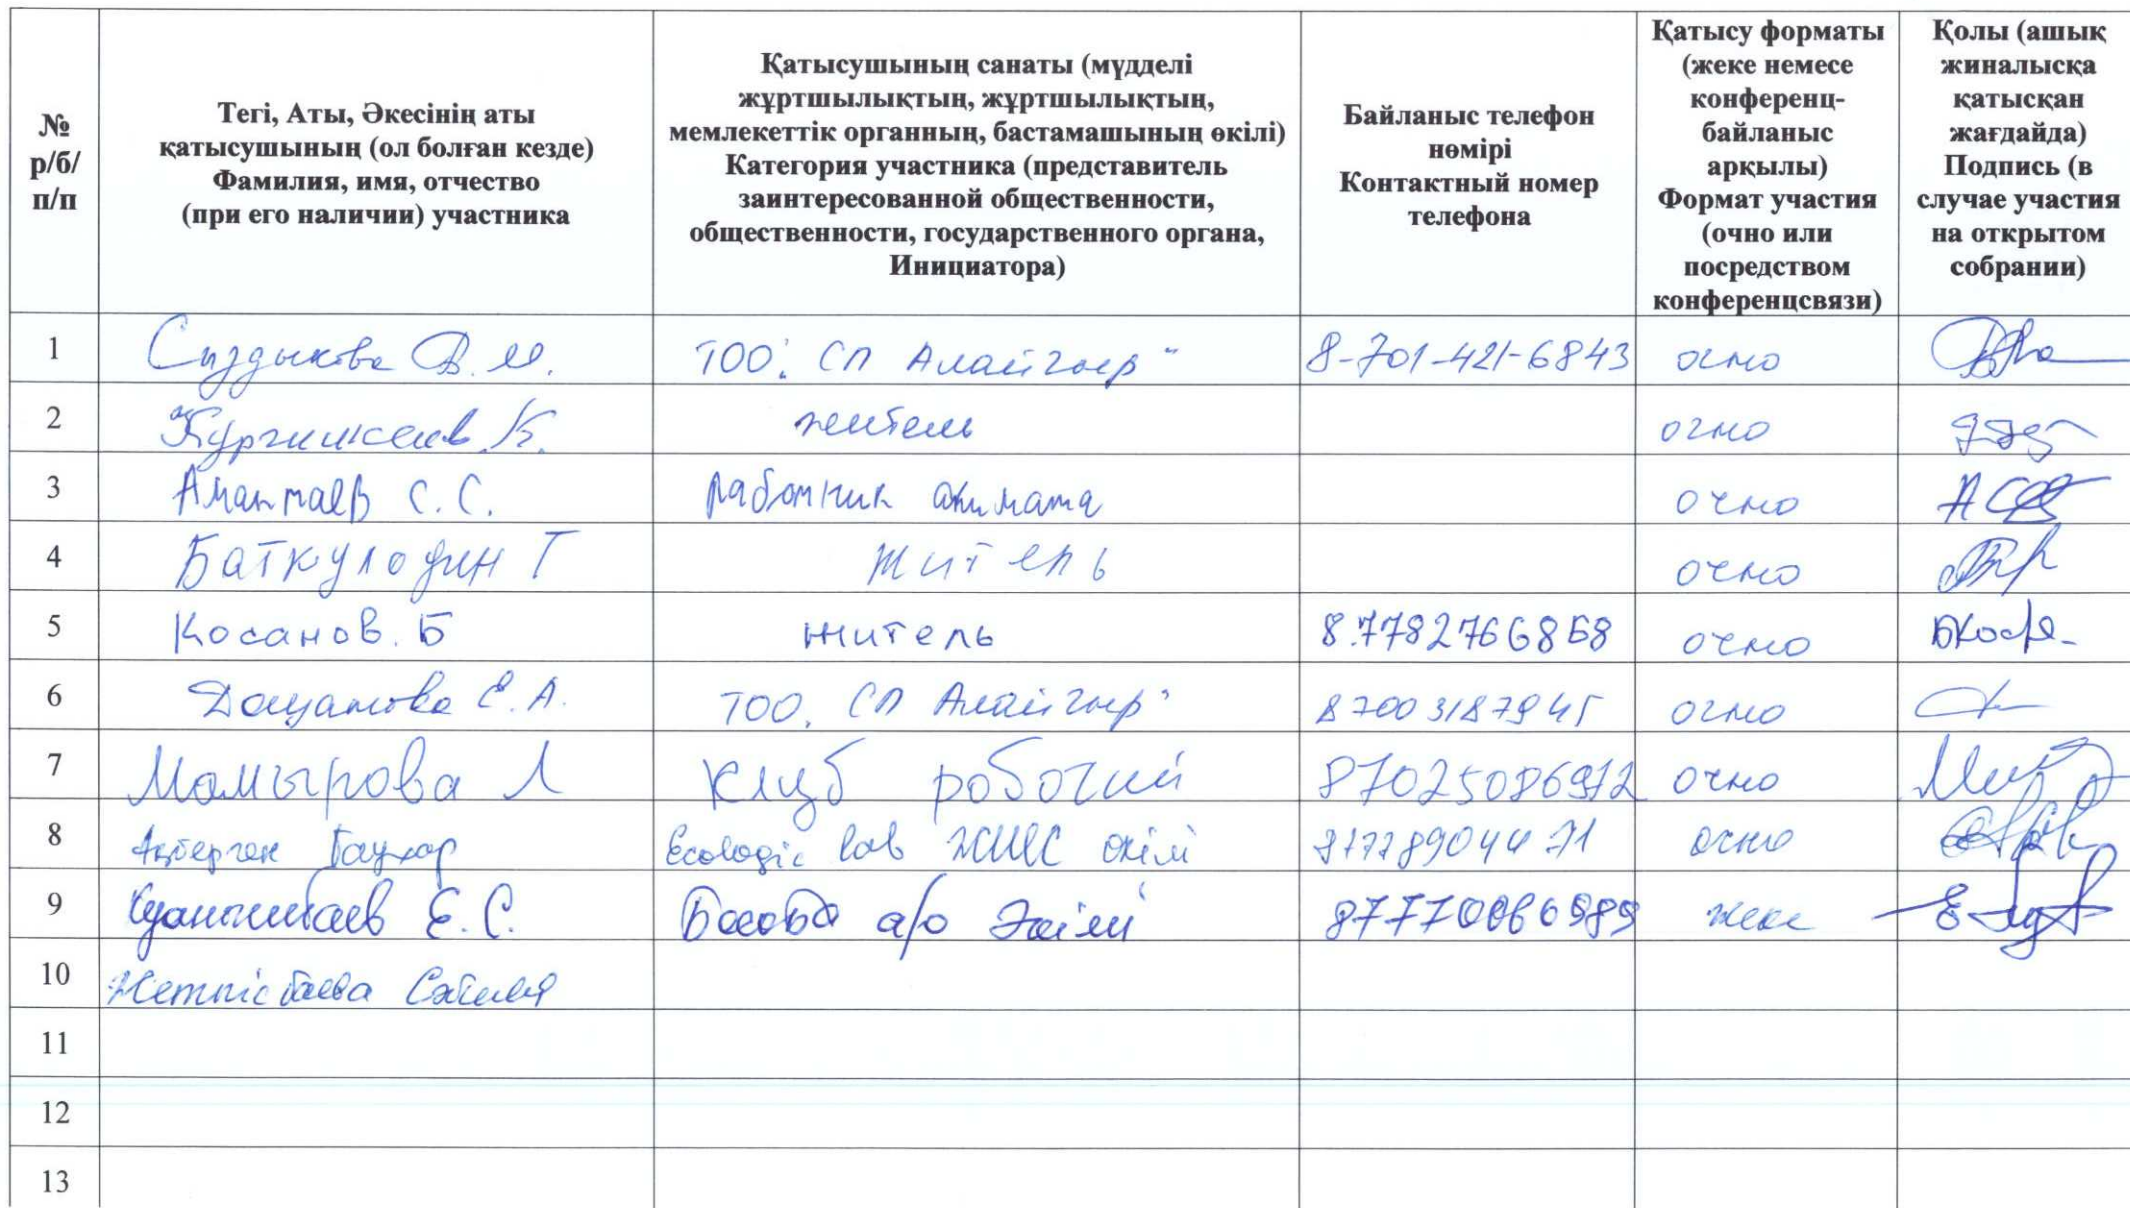 №
р/б/
п/п
Тегі, Аты, Әкесінің аты
қатысушының (ол болған кезде)
Фамилия, имя, отчество
(при его наличии) участника
Қатысушының санаты (мүдделі
жұртшылықтың, жұртшылықтың,
мемлекеттік органның, бастамашының өкілі)
Категория участника (представитель
заинтересованной общественности,
общественности, государственного органа,
Инициатора)
Байланыс телефон
нөмірі
Контактный номер
телефона
Қатысу форматы
(жеке немесе
конференц-
байланыс
арқылы)
Формат участия
(очно или
посредством
конференцсвязи)
Қолы (ашық
жиналысқа
қатысқан
жағдайда)
Подпись (в
случае участия
на открытом
собрании)
1 Сыздыкова В.М. ТОО "СП Алайгыр" 8-701-421-6843 очно
2 житель очно
3 С.С. работник акимата очно
4 Баткулодин Т житель очно
5 Косанов. Б житель 8.7782766868 очно
6 Е.А. ТОО "СП Алайгыр" 87003187945 очно
7 Мамырова Л клуб робочий 87025086972 очно
8 Ecologic Lab ЖШС өкілі очно
9 Куанышбаев Е.С. а/о Әкімі жеке
10 Жетпісбаева
11
12
13